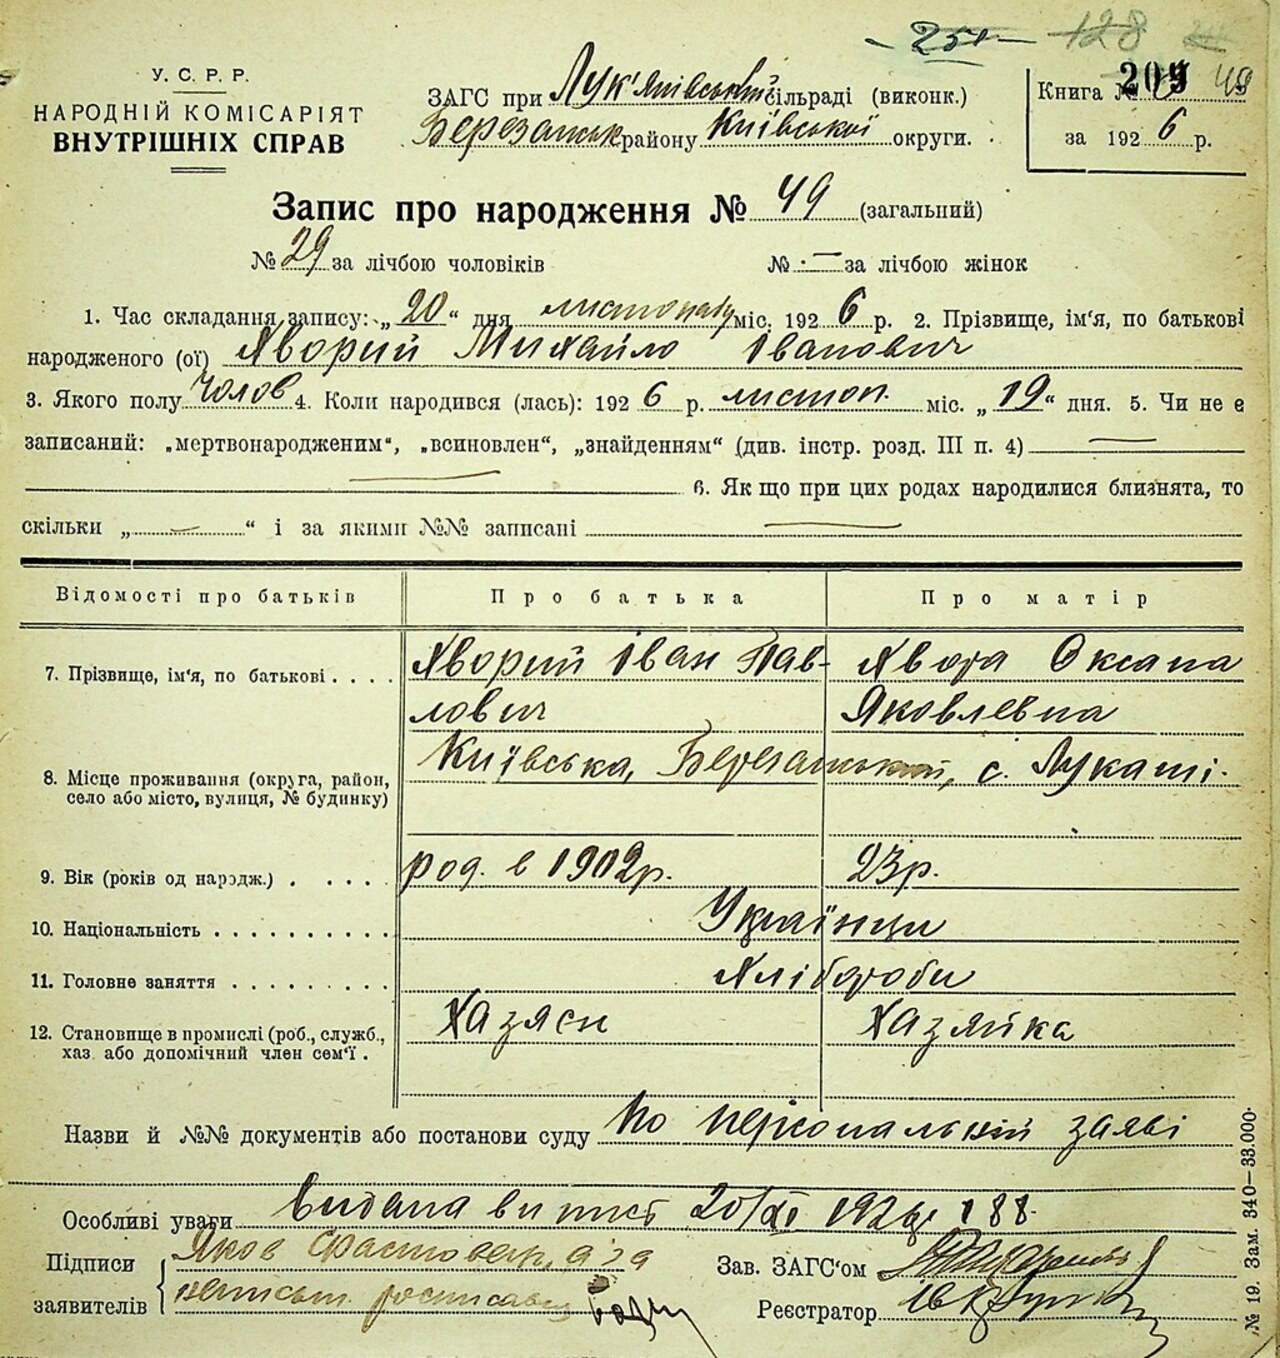 251 128
У. С. Р. Р.
НАРОДНІЙ КОМІСАРІЯТ
ВНУТРІШНІХ СПРАВ
ЗАГС при Лук'янівський сільраді (виконк.)
Березанськ району Київської округи.
Книга № 209 49
за 1926 р.
Запис про народження № 49 (загальний)
№ 29 за лічбою чоловіків № — за лічбою жінок
1. Час складання запису: „20“ дня листопаду міс. 1926 р. 2. Прізвище, ім‘я, по батькові
народженого (ої) Яворий Михайло Іванович
3. Якого полу Чолов 4. Коли народився (лась): 1926 р. листоп. міс. „19“ дня. 5. Чи не є
записаний: „мертвонародженим“, „всиновлен“, „знайденням“ (див. інстр. розд. III п. 4) —
— 6. Як що при цих родах народилися близнята, то
скільки „—“ і за якими №№ записані —
Відомості про батьків Про батька Про матір
7. Прізвище, ім‘я, по батькові . . . . Яворий Іван Пав- Явора Оксана
лович Яковлевна
8. Місце проживання (округа, район, Київська, Березанський, с. Лукаші.
село або місто, вулиця, № будинку)
9. Вік (років од народж.) . . . . род. в 1902р. 23р.
10. Національність . . . . . . . . . . Українци
11. Головне заняття . . . . . . . . . Хлібороби
12. Становище в промислі (роб., служб., Хазяєн Хазяйка
хаз. або допомічний член сем‘ї .
Назви й №№ документів або постанови суду по персональній заяві
Особливі уваги Видана випис 20/XI 1926р. 188.
Підписи Яков
заявителів
Зав. ЗАГС‘ом
Реєстратор
№ 19. Зам. 340—33.000.